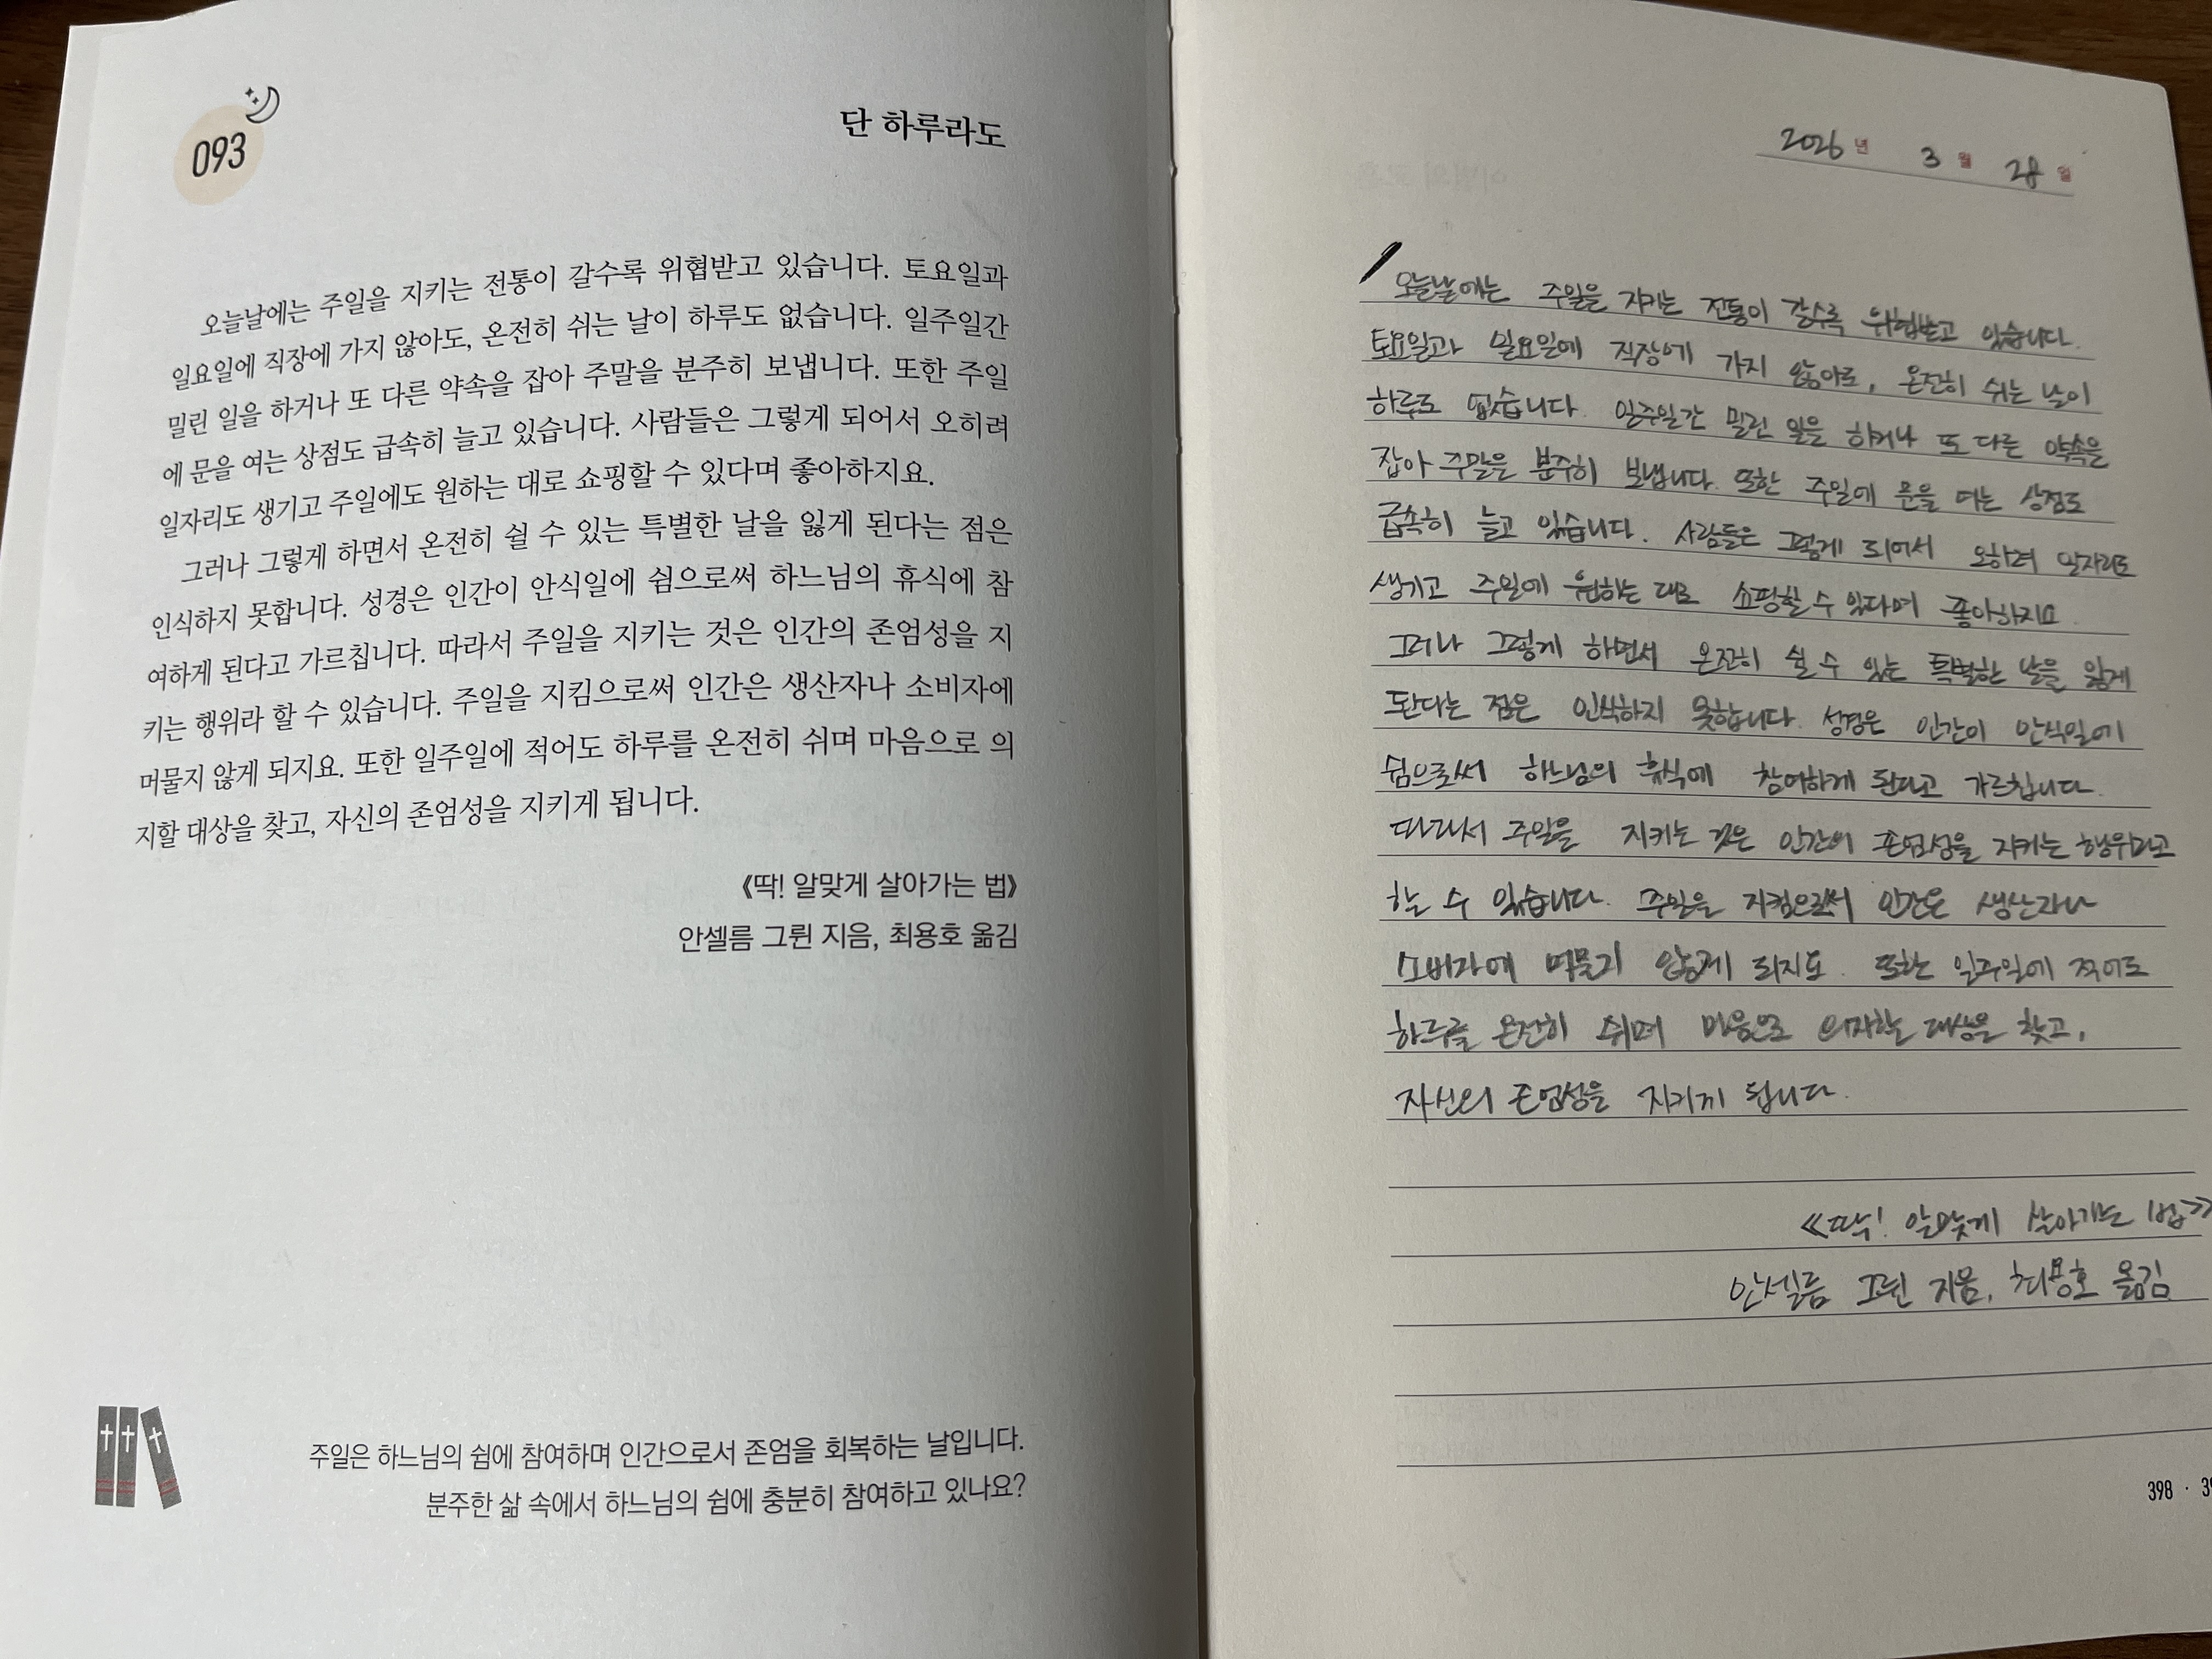 093
단 하루라도
오늘날에는 주일을 지키는 전통이 갈수록 위협받고 있습니다. 토요일과
일요일에 직장에 가지 않아도, 온전히 쉬는 날이 하루도 없습니다. 일주일간
밀린 일을 하거나 또 다른 약속을 잡아 주말을 분주히 보냅니다. 또한 주일
에 문을 여는 상점도 급속히 늘고 있습니다. 사람들은 그렇게 되어서 오히려
일자리도 생기고 주일에도 원하는 대로 쇼핑할 수 있다며 좋아하지요.
그러나 그렇게 하면서 온전히 쉴 수 있는 특별한 날을 잃게 된다는 점은
인식하지 못합니다. 성경은 인간이 안식일에 쉼으로써 하느님의 휴식에 참
여하게 된다고 가르칩니다. 따라서 주일을 지키는 것은 인간의 존엄성을 지
키는 행위라 할 수 있습니다. 주일을 지킴으로써 인간은 생산자나 소비자에
머물지 않게 되지요. 또한 일주일에 적어도 하루를 온전히 쉬며 마음으로 의
지할 대상을 찾고, 자신의 존엄성을 지키게 됩니다.
《딱! 알맞게 살아가는 법》
안셀름 그륀 지음, 최용호 옮김
주일은 하느님의 쉼에 참여하며 인간으로서 존엄을 회복하는 날입니다.
분주한 삶 속에서 하느님의 쉼에 충분히 참여하고 있나요?
2026년 3월 28일
오늘날에는 주일을 지키는 전통이 갈수록 위협받고 있습니다.
토요일과 일요일에 직장에 가지 않아도, 온전히 쉬는 날이
하루도 없습니다. 일주일간 밀린 일을 하거나 또 다른 약속을
잡아 주말을 분주히 보냅니다. 또한 주일에 문을 여는 상점도
급속히 늘고 있습니다. 사람들은 그렇게 되어서 오히려 일자리도
생기고 주일에 원하는 대로 쇼핑할 수 있다며 좋아하지요.
그러나 그렇게 하면서 온전히 쉴 수 있는 특별한 날을 잃게
된다는 점은 인식하지 못합니다. 성경은 인간이 안식일에
쉼으로써 하느님의 휴식에 참여하게 된다고 가르칩니다.
따라서 주일을 지키는 것은 인간의 존엄성을 지키는 행위라고
할 수 있습니다. 주일을 지킴으로써 인간은 생산자나
소비자에 머물지 않게 되지요. 또한 일주일에 적어도
하루를 온전히 쉬며 마음으로 의지할 대상을 찾고,
자신의 존엄성을 지키게 됩니다.
《딱! 알맞게 살아가는 법》
안셀름 그륀 지음, 최용호 옮김
398 ·